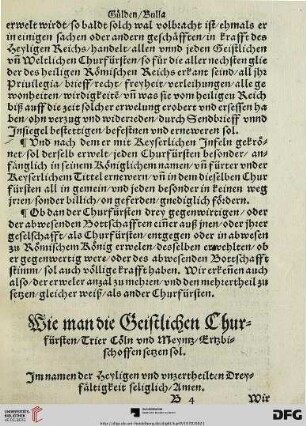 Gülden/Bulla
erwelt wirdt/ so baldt solch wal volbracht ist/ ehmals er
in einigen sachen oder andern geschäfften/ in krafft des
Heyligen Reichs/ handelt/ allen vnnd jeden Geistlichen
vñ Weltlichen Churfürsten/ so für die aller nechsten glie
der des heiligen Römischen Reichs erkant seind/ all jhr
Priuilegia/ brieff/ recht/ freyheit/ verleihungen/ alle ge
wonheiten/ wirdigkeitẽ/ vñ was sie vom heiligen Reich
biß auff die zeit solcher erwelung erobert vnd ersessen ha
ben/ ohn verzug vnd widerreden/ durch Sendbrieff vnnd
Insiegel bestettigen/ befestnen vnd erneweren sol.
¶ Vnd nach dem er mit Keyserlichen Infeln gekrö-
net/ sol derselb erwelt/ jeden Churfürsten besonder/ an-
fänglich in seinem Königlichen namen/ vñ fürter vnder
Keyserlichem Tittel ernewern/ vñ in dem dieselben Chur
fürsten all in gemein/ vnd jeden besonder in keinen weg
jrren/ sonder billich/ on geferden/ gnediglich fördern.
¶ Ob dan der Churfürsten drey gegenwirtigen/ oder
der abwesenden Bottschafften einẽr auß jnen/ oder jhrer
gesellschafft/ als Churfürsten/ entgegen oder in abwesen
zu Römischem König erwelen/ desselben erwehlten/ ob
er gegenwertig were/ oder des abwesenden Bottschafft
stimm/ sol auch völlige krafft haben. Wir erkeñen auch
also/ der erweler anzal zu mehren/ vnd den mehrertheil zu
setzen/ gleicher weiß/ als ander Churfürsten.
Wie man die Geistlichen Chur-
fürsten/ Trier Cöln vnd Meyntz/ Ertzbi-
schoffen setzen sol.
Im namen der Heyligen vnd vnzertheilten Drey-
fältigkeit seliglich/ Amen.
B 4 Wir
UNIVERSITÄTS-
BIBLIOTHEK
HEIDELBERG
DFG